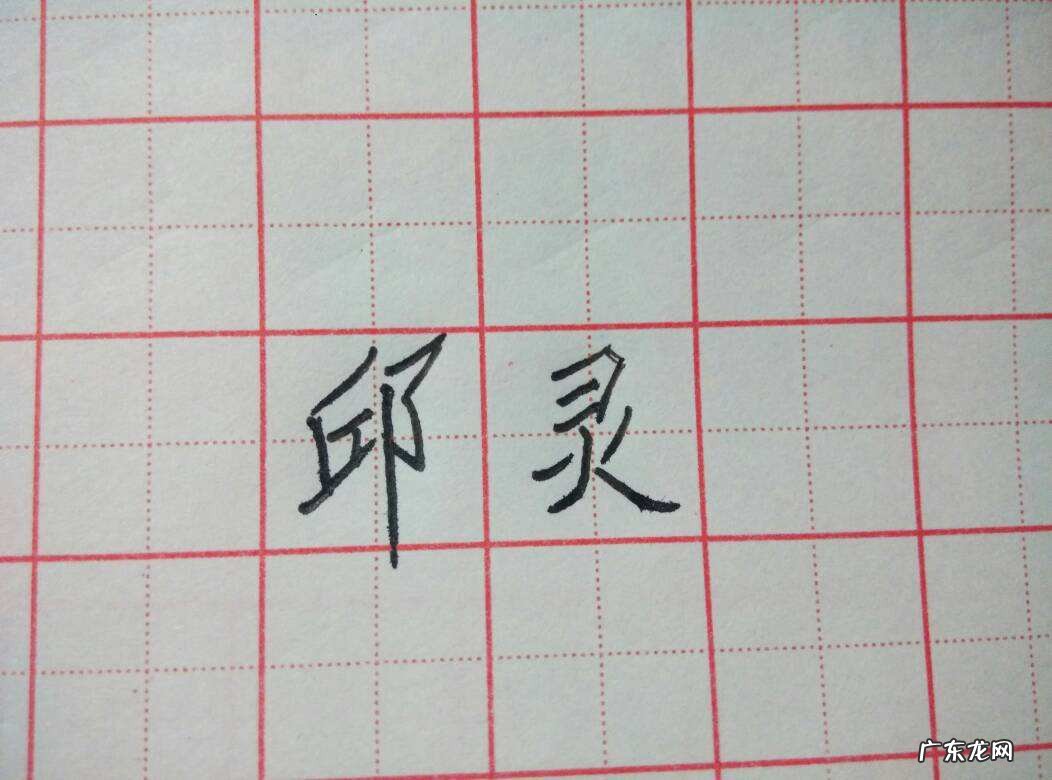 邱灵
广东龙网